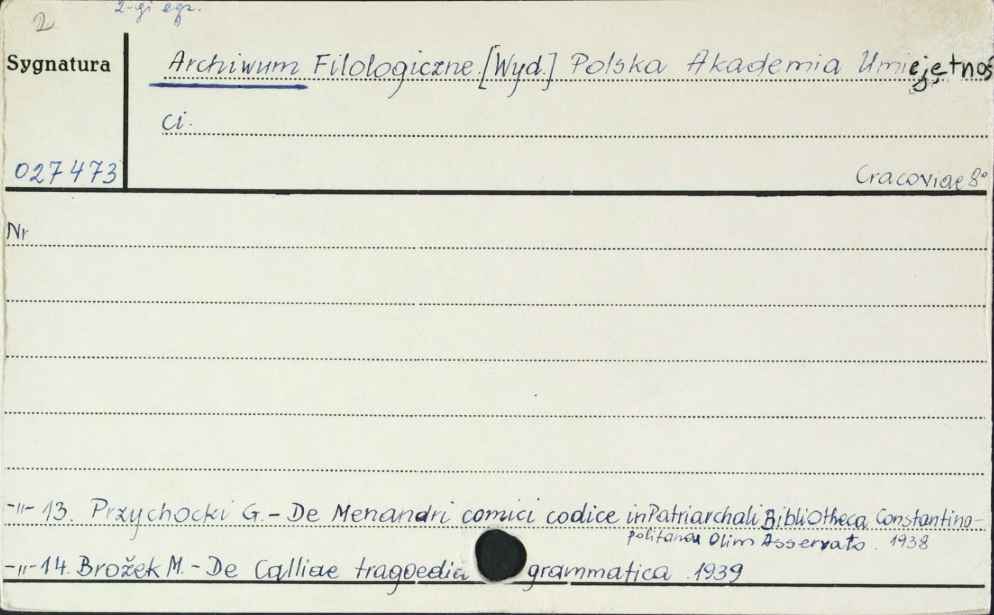 2
2-gi egz.
Sygnatura
Archiwum Filologiczne. [Wyd.] Polska Akademia Umiejętnoś
ci.
027473
Cracoviae 8°
Nr
-"- 13. Przychocki G. - De Menandri comici codice in Patriarchali Bibliotheca Constantino-
politana Olim Asservato. 1938
-"- 14. Brožek M. - De Calliae tragoedia grammatica. 1939